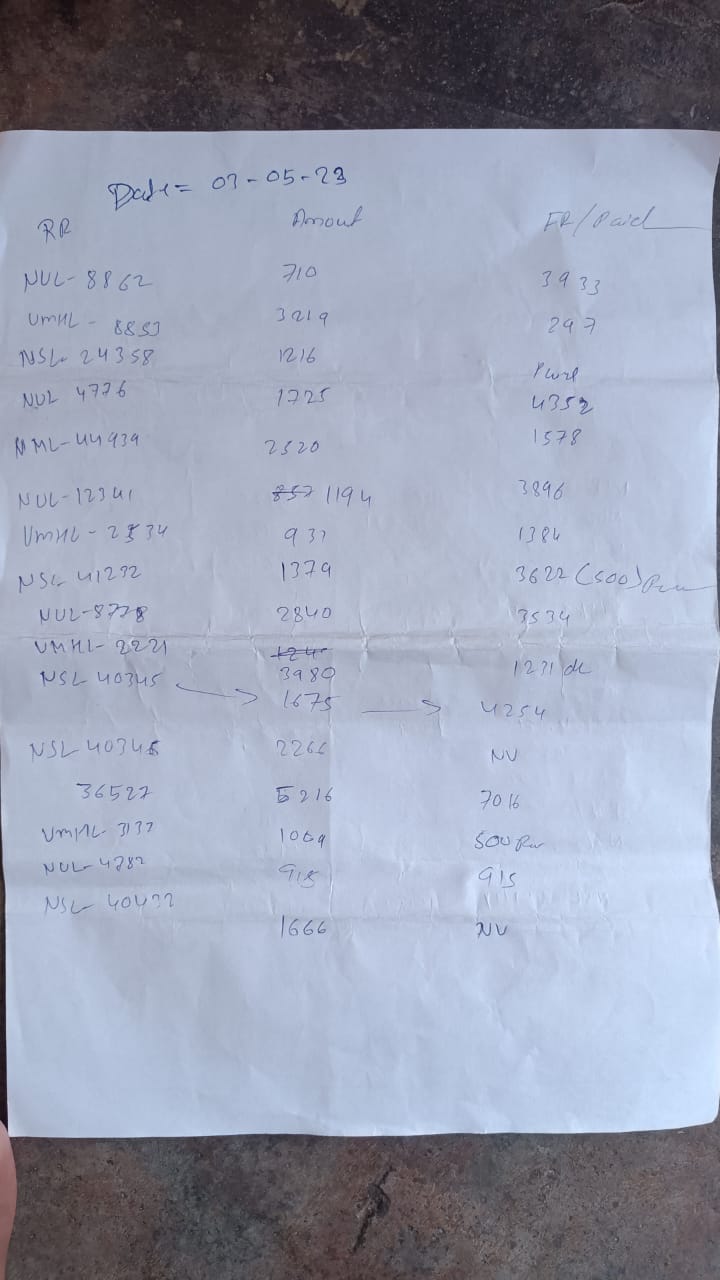 Date= 03-05-23
RR Amout FR/Paid
NUL-8862 710 3933
UMHL- 8853 3219 297
NSL- 24358 1216
NUL 4776 1725 4352
NML-44939 2520 1578
NUL-12341 857 1194 3896
UMHL-2534 937 1384
NSL 41232 1379 3622 (500)
NUL-8778 2840 3534
UMHL-2221 124
NSL 40345 3980 1231 dl
1675 4254
NSL 40345 2266 NV
36527 5216 7016
UMHL-3137 1009 500
NUL-4782 915 915
NSL 40432
1666 NV